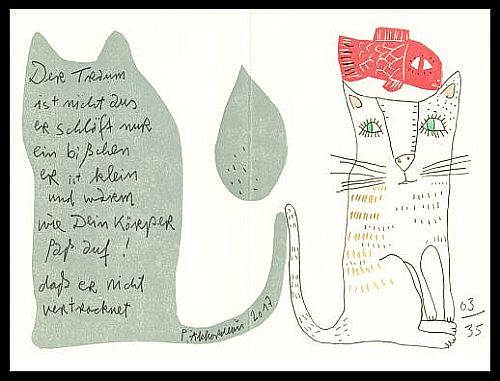 Der Traum
ist nicht aus
er schläft nur
ein bißchen
er ist klein
und warm
wie Dein Körper
paß auf!
daß er nicht
vertrocknet
2017
03
35